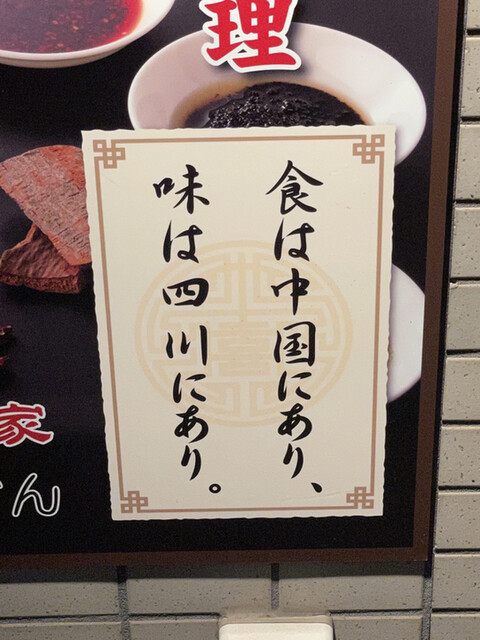 理
食は中国にあり、
味は四川にあり。
家
ん